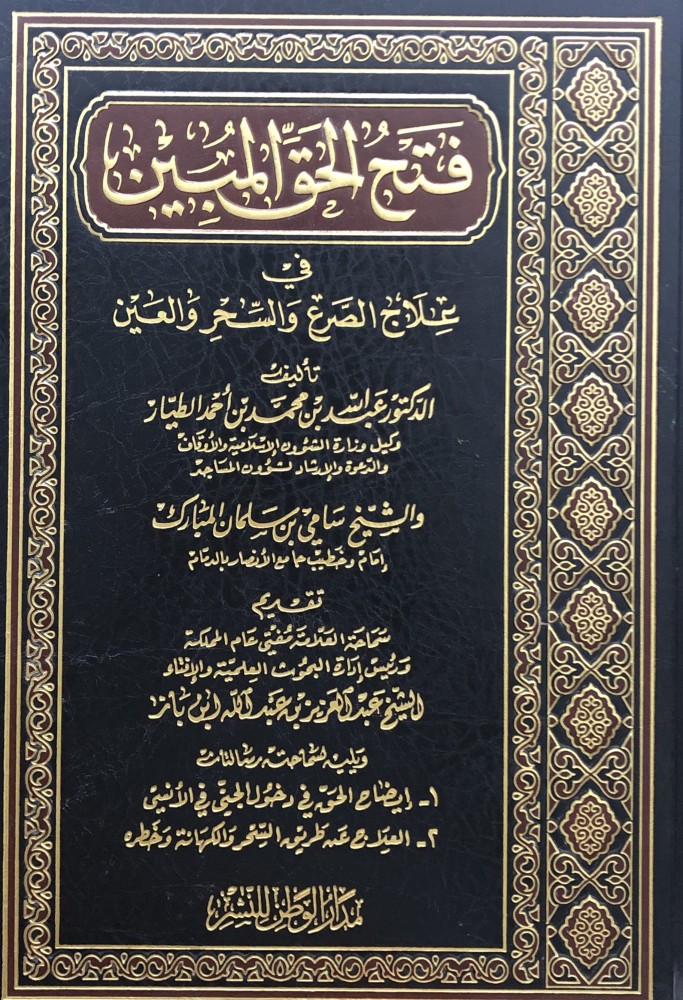 فَتْحُ الحَقِّ المُبِيْن
في
عِلَاجِ الصَّرَعِ وَالسِّحْرِ وَالعَيْن
تأليف
الدكتور عبدالله بن محمد بن أحمد الطيّار
وكيل وزارة الشؤون الإسلامية والأوقاف
والدعوة والإرشاد لشؤون المساجد
والشيخ سامي بن سلمان المبارك
إمام وخطيب جامع الأنصار بالدمام
تقديم
سماحة العلّامة مُفتي عام المملكة
ورئيس إدارة البحوث العلميّة والإفتاء
الشيخ عبد العزيز بن عبد الله ابن باز
ويليه لسماحته رسالتان
١- إيضاح الحق في دخول الجني في الأنسي
٢- العلاج عن طريق السحر والكهانة وخطره
مدار الوطن للنشر